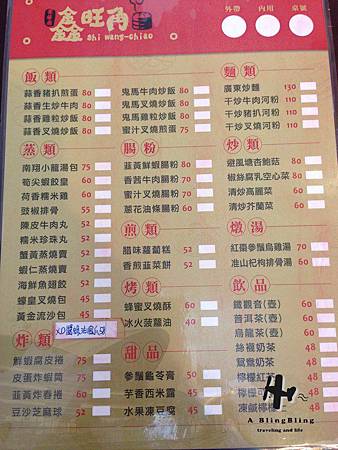 鑫旺角
shi wang-chiao
外帶 內用 桌號
飯類
蒜香豬扒煎蛋 80
蒜香生炒牛肉 80
蒜香雞粒炒飯 80
蒜香叉燒炒飯 80
鬼馬牛肉炒飯 80
鬼馬叉燒炒飯 80
鬼馬雞粒炒飯 80
蜜汁叉燒煎蛋 90
麵類
廣東炒麵 130
干炒牛肉河粉 110
干炒豬扒河粉 110
干炒叉燒河粉 110
蒸類
南翔小籠湯包 75
筍尖蝦餃皇 60
荷香糯米雞 60
豉椒排骨 55
陳皮牛肉丸 52
糯米珍珠丸 52
蟹黃蒸燒賣 52
蝦仁蒸燒賣 52
海鮮魚翅餃 52
蠔皇叉燒包 45
黃金流沙包 45
XO醬
腸粉
韮黃鮮蝦腸粉 60
香茜牛肉腸粉 60
蜜汁叉燒腸粉 60
蔥花油條腸粉 60
煎類
腊味蘿蔔糕 52
香煎韮菜餅 52
烤類
蜂蜜叉燒酥 60
冰火菠蘿油 40
炒類
避風塘杏鮑菇 80
椒絲腐乳空心菜 80
清炒高麗菜 60
清炒芥蘭菜 60
燉湯
紅棗參鬚烏雞湯 70
准山杞枸排骨湯 60
飲品
鐵觀音(壺) 60
普洱茶(壺) 60
烏龍茶(壺) 60
絲襪奶茶 48
鴛鴦奶茶 48
檸檬紅茶 48
48
凍鹹檸檬 48
炸類
鮮蝦腐皮捲 75
皮蛋炸蝦筒 75
韮黃炸春捲 60
豆沙芝麻球 52
甜品
參鬚龜苓膏 50
芋香西米露 50
水果凍豆腐 50
A BlingBling
traveling and life